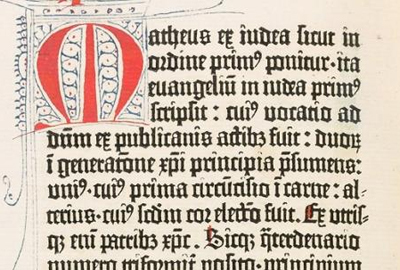 Matheus ex iudea sicut in
ordine primꝰ ponitur·ita
euangeliū in iudea primꝰ
scripsit : cuiꝰ vocatio ad
dūm ex publicanis actibꝫ fuit : duoꝝ
ī generatōne xp̄i principia p̄sumens:
vniꝰ·cuiꝰ prima circūcisio ī carne : al-
terius·cuiꝰ scd̄m cor electō fuit. Ex vtris-
qꝫ em̄ patribꝫ xp̄c. Sicqꝫ q̄terdenario
numero triformit̄ posito·principium